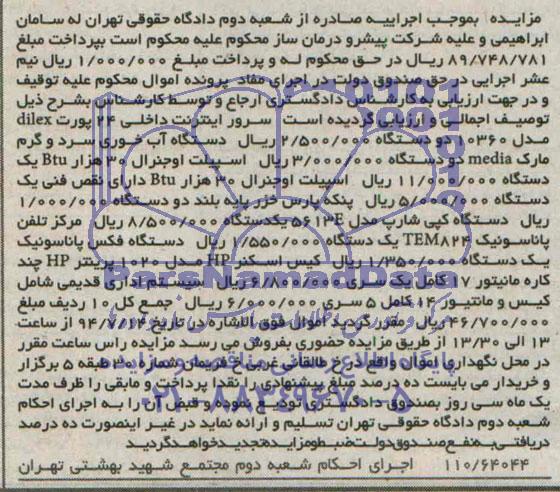 مزایده بموجب اجراییه صادره از شعبه دوم دادگاه حقوقی تهران له سامان
ابراهیمی و علیه شرکت پیشرو درمان ساز محکوم علیه محکوم است بپرداخت مبلغ
۸۹/۷۴۸/۷۸۱ ریال در حق محکوم له و پرداخت مبلغ ۱/۰۰۰/۰۰۰ ریال نیم
عشر اجرایی در حق صندوق دولت در اجرای مفاد پرونده اموال محکوم علیه توقیف
و در جهت ارزیابی به کارشناس دادگستری ارجاع و توسط کارشناس بشرح ذیل
توصیف اجمالی و ارزیابی گردیده است سرور اینترنت داخلی ۲۴ پورت dilex
مدل ۱۰۳۶۰ دو دستگاه ۲/۵۰۰/۰۰۰ ریال دستگاه آب خوری سرد و گرم
مارک media دو دستگاه ۳/۰۰۰/۰۰۰ ریال اسپیلت اوجنرال ۳۰ هزار Btu یک
دستگاه ۱۱/۰۰۰/۰۰۰ ریال اسپیلت اوجنرال ۳۰ هزار Btu دارای نقص فنی یک
دستگاه ۵/۰۰۰/۰۰۰ ریال پنکه پارس خزر پایه بلند دو دستگاه ۱/۰۰۰/۰۰۰
ریال دستگاه کپی شارپ مدل ۵۶۱۳E یکدستگاه ۸/۵۰۰/۰۰۰ ریال مرکز تلفن
پاناسونیک TEM۸۲۴ یک دستگاه ۱/۵۵۰/۰۰۰ ریال دستگاه فکس پاناسونیک
یک دستگاه ۱/۳۵۰/۰۰۰ ریال کیس اسکنر HP مدل ۱۰۲۰ پرینتر HP چند
کاره مانیتور ۱۷ کامل یک سری ۶/۸۰۰/۰۰۰ ریال سیستم اداری قدیمی شامل
کیس و مانتیور ۱۴ کامل ۵ سری ۶/۰۰۰/۰۰۰ ریال جمع کل ۱۰ ردیف مبلغ
۴۶/۷۰۰/۰۰۰ ریال مقرر گردید اموال فوق الاشاره در تاریخ ۹۴/۷/۱۴ از ساعت
۱۳ الی ۱۳/۳۰ از طریق مزایده حضوری بفروش می رسد مزایده راس ساعت مقرر
در محل نگهداری اموال واقع در خ طالقانی غربی خ فریمان شماره ۳۰ طبقه ۵ برگزار
و خریدار می بایست ده درصد مبلغ پیشنهادی را نقدا پرداخت و مابقی را ظرف مدت
یک ماه سی روز بصندوق دادگستری تودیع نموده و قبض آن را به اجرای احکام
شعبه دوم دادگاه حقوقی تهران تسلیم و ارائه نماید در غیر اینصورت ده درصد
دریافتی به نفع صندوق دولت ضبط و مزایده تجدید خواهد گردید
۱۱۰/۶۴۰۴۴ اجرای احکام شعبه دوم مجتمع شهید بهشتی تهران
ParsNamadData
پایگاه اطلاع رسانی مناقصه و مزایده
۰۲۱-۸۸۳۴۹۶۷۰-۵